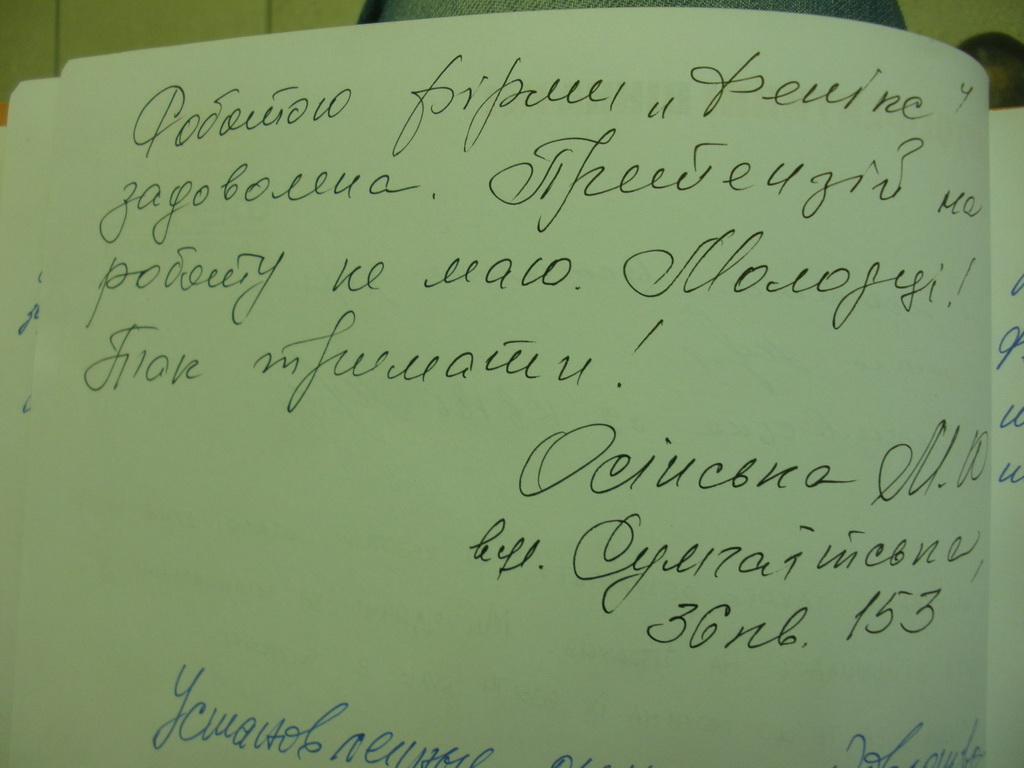 Роботою фірми „Фенікс"
задоволена. Притензій на
роботу не маю. Молодці!
Так тримати!
Осінська М.Ю
вул. Сумгаїтська,
36 кв. 153
Установленные